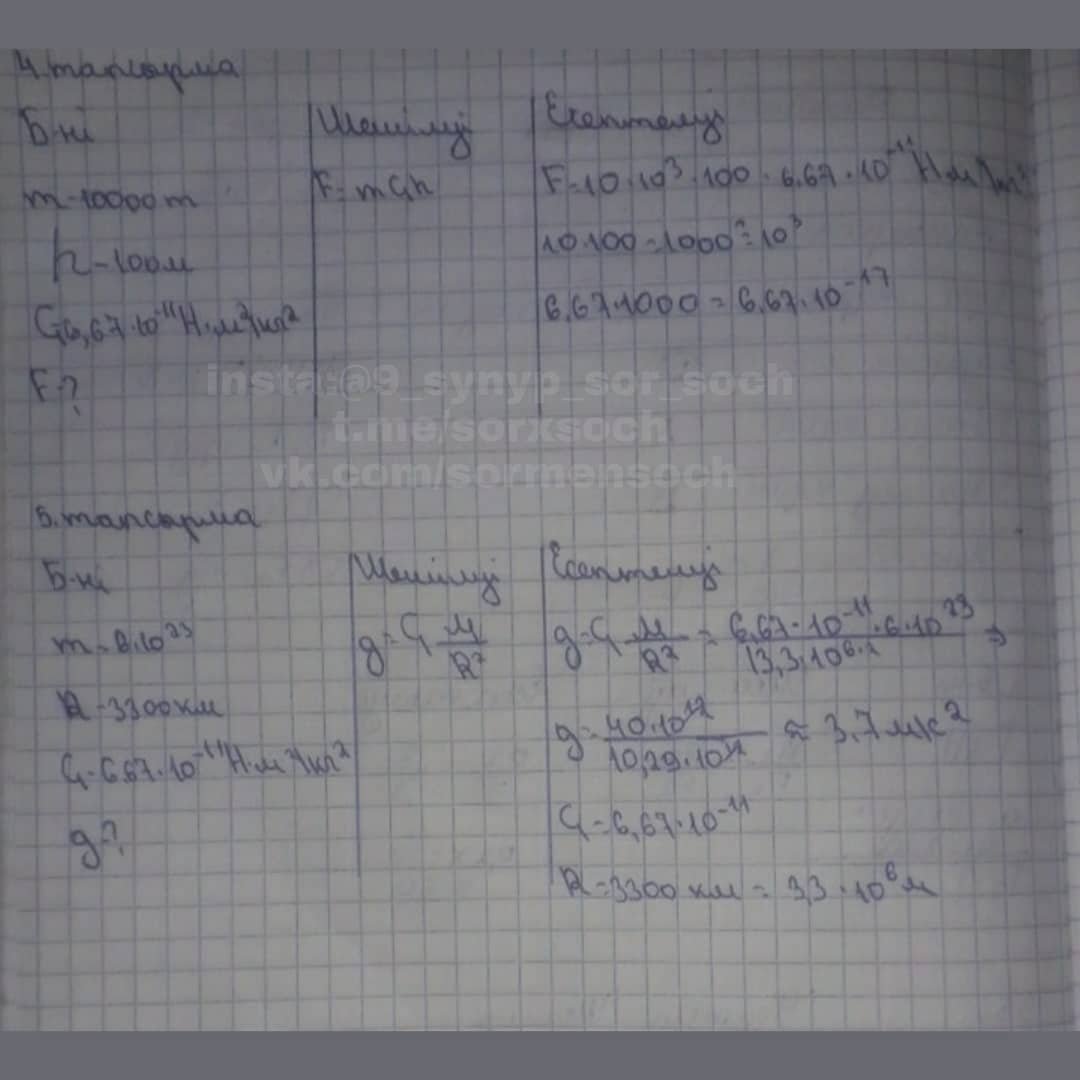 4.тапсырма
Б-ні
m-10000т
h-100м
G6,67·10⁻¹¹Н·м²/кг²
F-?
Шешілуі
F=mGh
Есептелуі
F=10·10³·100·6,67·10⁻¹¹Н·м²/кг²
10·100=1000=10³
6,67·1000=6,67·10⁻¹⁷
insta:@9_synyp_sor_soch
t.me/sorxsoch
vk.com/sormensoch
5.тапсырма
Б-ні
m=6·10²³
R-3300км
G-6,67·10⁻¹¹Н·м²/кг²
g-?
Шешілуі
g=G M/R²
Есептелуі
g=G M/R² = 6,67·10⁻¹¹·6·10²³/(3,3·10⁶)² ⇒
g=40·10¹²/10,29·10¹² ≈ 3,7м/с²
G=6,67·10⁻¹¹
R=3300 км = 3,3·10⁶м